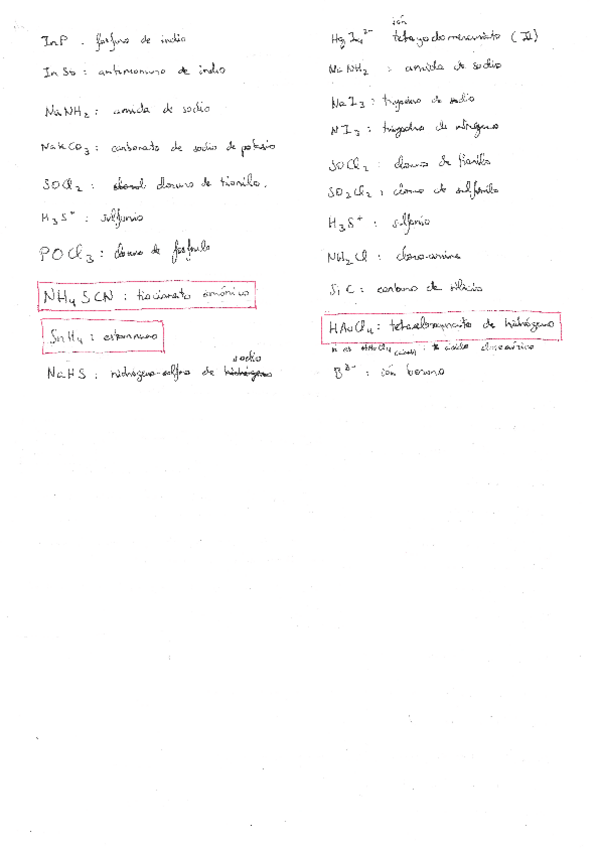 InP : fosfuro de indio
InSb : antimoniuro de indio
NaNH₂ : amida de sodio
NaKCO₃ : carbonato de sodio de potasio
SOCl₂ : cloruro de tionilo.
H₃S⁺ : sulfonio
POCl₃ : cloruro de fosforilo
NH₄SCN : tiocianato amónico
SnH₄ : estannuro
sodio
NaHS : hidrógeno-sulfuro de hidrógeno
ión
HgI₄²⁻ tetrayodomercuriato (II)
NaNH₂ : amida de sodio
NaI₃ : triyoduro de sodio
NI₃ : triyoduro de nitrógeno
SOCl₂ : cloruro de tionilo
SO₂Cl₂ : cloruro de sulfurilo
H₃S⁺ : sulfonio
NH₂Cl : cloroamina
SiC : carburo de silicio
HAuCl₄ : tetracloroaurato de hidrógeno
si es HAuCl₄ : ácido cloroáurico
: ión boruro